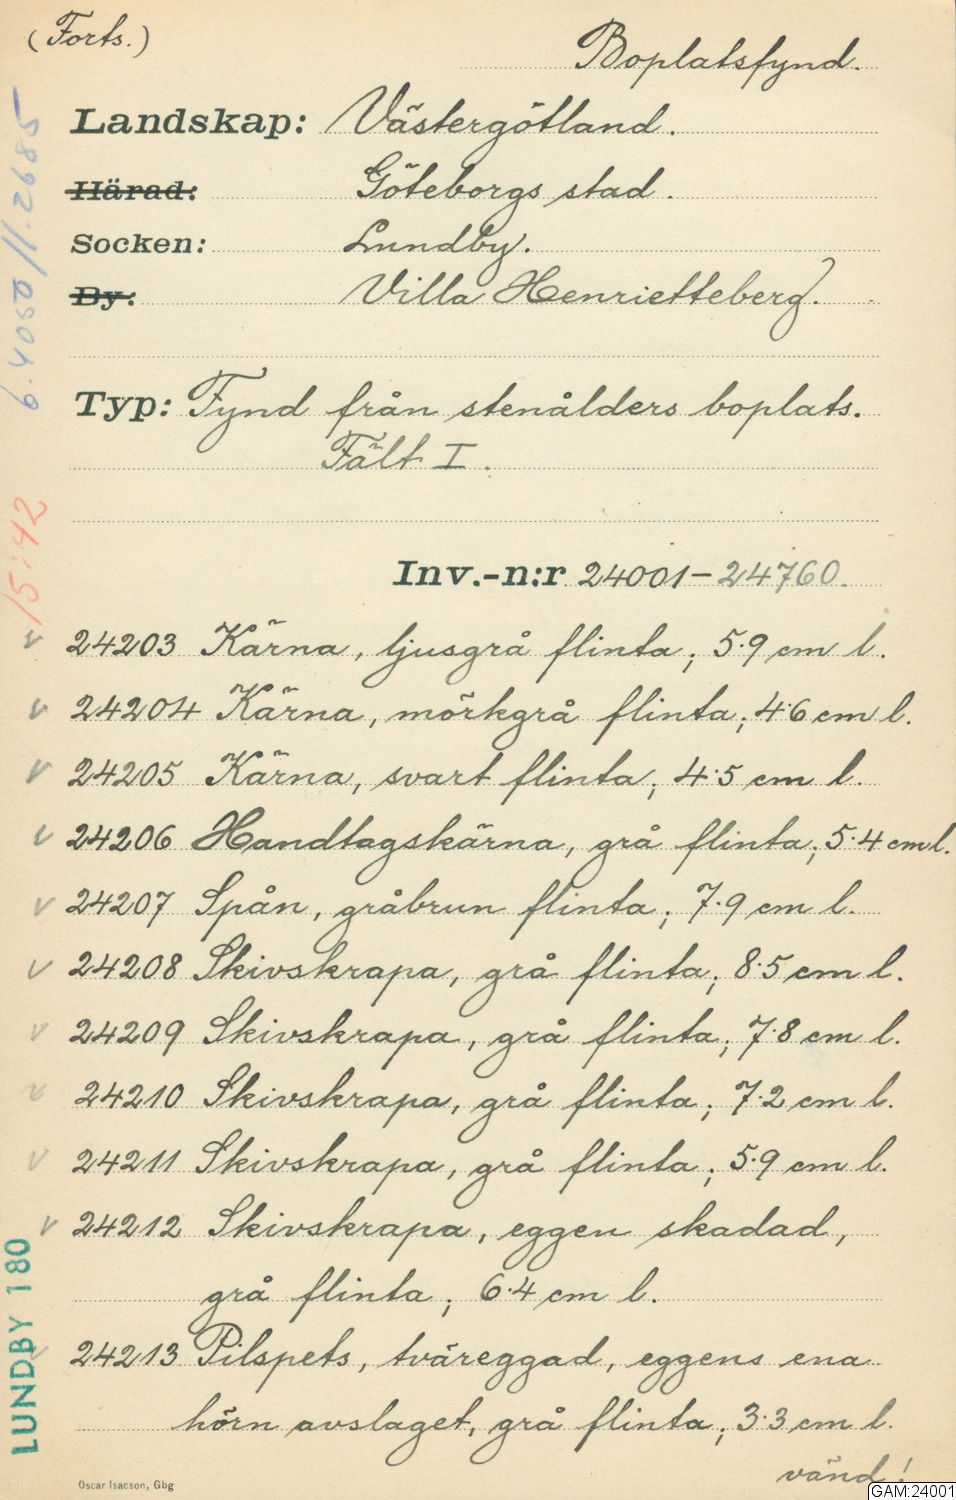 (Forts.)
Boplatsfynd.
Landskap: Västergötland.
Härad: Göteborgs stad.
Socken: Lundby.
By: Villa Henrietteberg.
Typ: Fynd från stenålders boplats.
Fält I.
Inv.-n:r 24001-24760.
24203 Kärna, ljusgrå flinta; 5.9 cm l.
24204 Kärna, mörkgrå flinta; 4.6 cm l.
24205 Kärna, svart flinta; 4.5 cm l.
24206 Handtagskärna, grå flinta; 5.4 cm l.
24207 Spån, gråbrun flinta; 7.9 cm l.
24208 Skivskrapa, grå flinta; 8.5 cm l.
24209 Skivskrapa, grå flinta; 7.8 cm l.
24210 Skivskrapa, grå flinta; 7.2 cm l.
24211 Skivskrapa, grå flinta; 5.9 cm l.
24212 Skivskrapa, eggen skadad,
grå flinta; 6.4 cm l.
24213 Pilspets, tväreggad, eggens ena
hörn avslaget, grå flinta; 3.3 cm l.
vänd!
Oscar Isacson, Gbg
GAM:24001
6.4050//.2685
15:42
LUNDBY 180